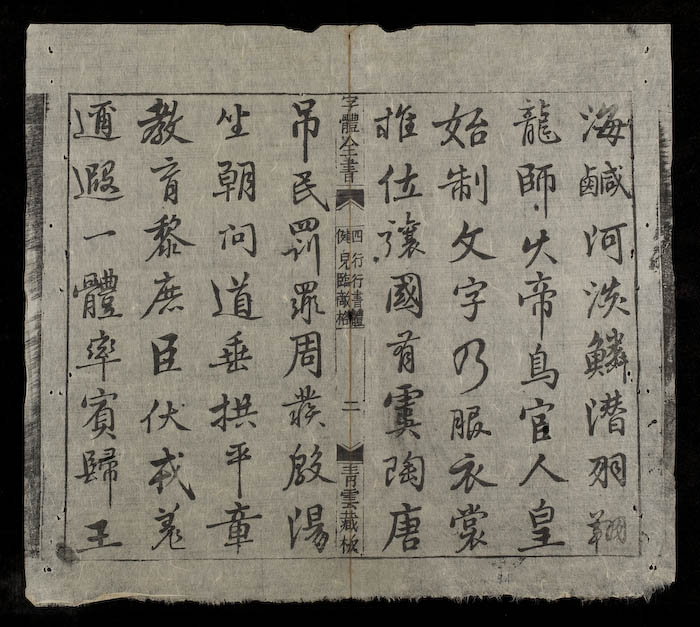 海鹹河淡鱗潛羽翔
龍師火帝鳥官人皇
始制文字乃服衣裳
推位讓國有虞陶唐
字體全書
四行行書體
兒臨格
二
青雲藏板
吊民罰罪周發殷湯
坐朝问道垂拱平章
教育黎庶臣伏戎羌
邇遐一體率賓歸王